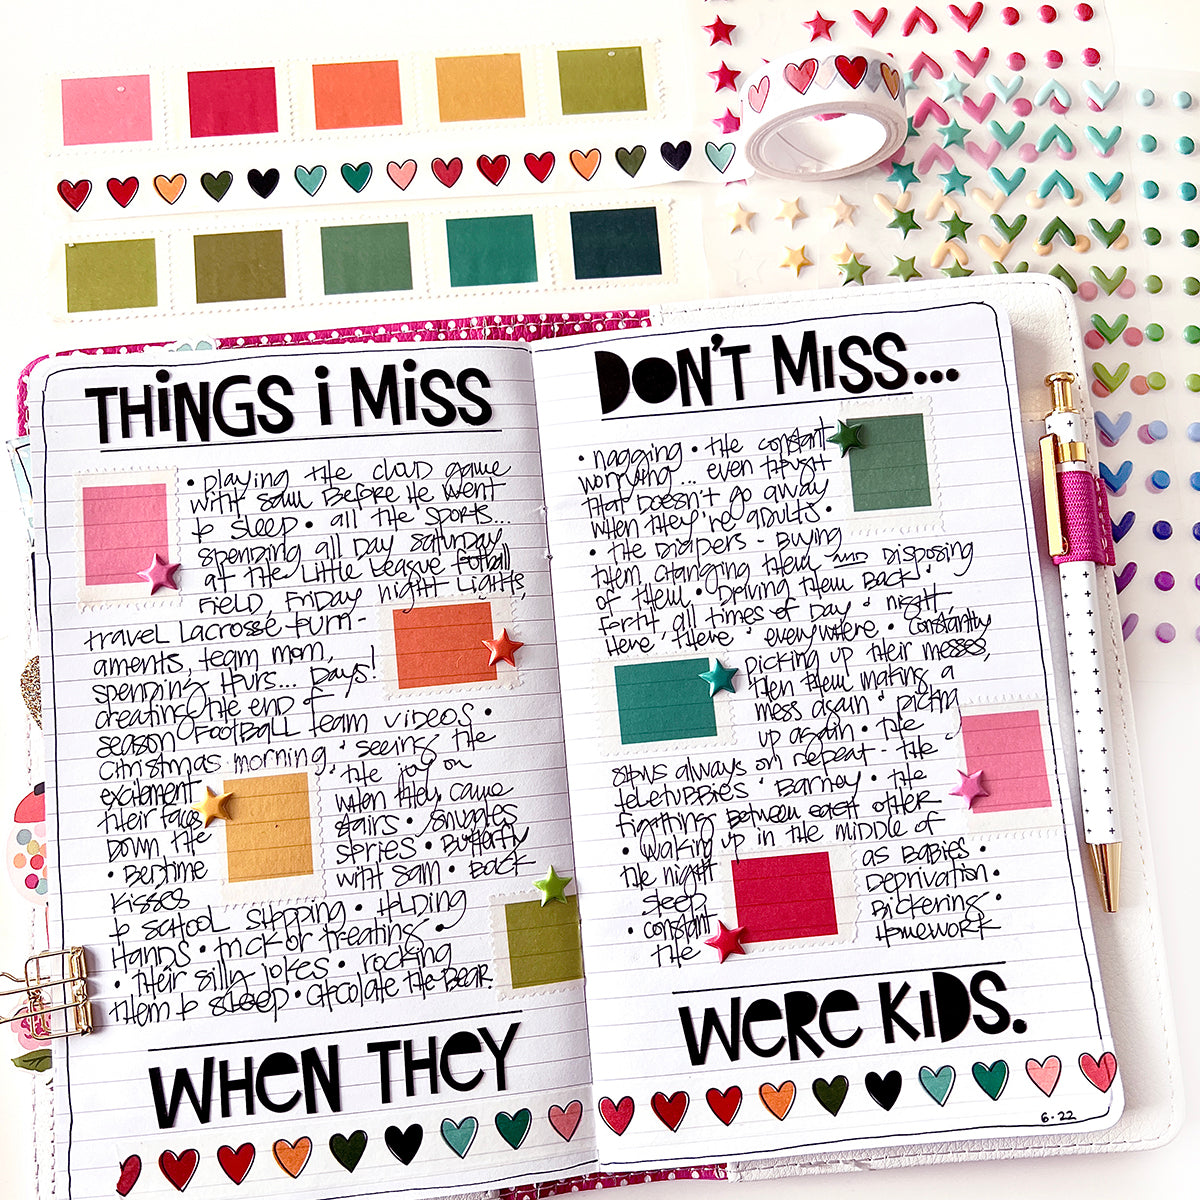 THINGS i MISS
• playing the cloud game
with Sam before he went
to sleep • all the sports...
spending all day Saturday
at the Little League football
field, Friday night lights,
travel lacrosse tourn-
aments, team mom,
spending hours... Days!
creating the end of
season football team videos •
Christmas morning • seeing the
excitement • the joy on
their faces when they came
down the stairs • snuggles
• Bedtime stories • Butterfly
kisses with Sam • Back
to school shopping • Holding
hands • trick or treating •
• their silly jokes • rocking
them to sleep • chocolate the Bear.
WHEN THEY
DON'T MISS...
• nagging • the constant
worrying... even though
that doesn't go away
when they're adults •
• the diapers - Buying
them, changing them AND disposing
of them • Driving them back •
forth, all times of day • night,
here, there • everywhere • constantly
picking up their messes,
then them making a
mess again • picking
up again • the
shows always on repeat - the
teletubbies • Barney • the
fighting between each other
• waking up in the middle of
the night as Babies •
sleep Deprivation •
• constant Bickering •
the Homework
WERE KiDS.
6 • 22